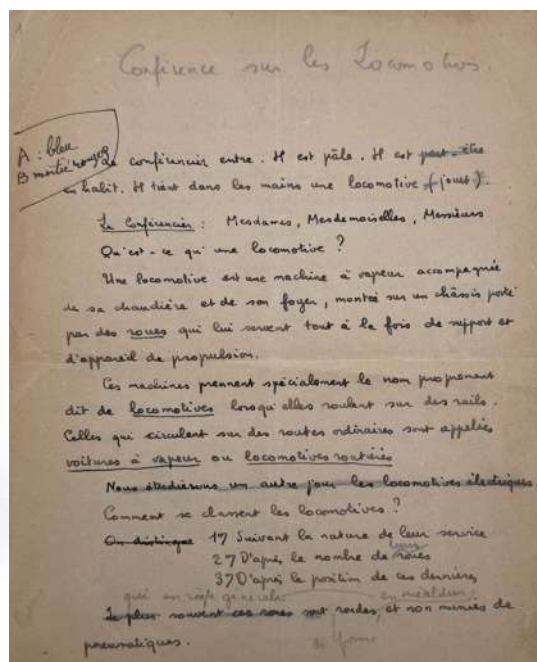 Conférence sur les Locomotives.
A : bleu
B moitié rouge
Le conférencier entre. Il est pâle. Il est peut-être
en habit. Il tient dans les mains une locomotive (jouet).
Le Conférencier : Mesdames, Mesdemoiselles, Messieurs
Qu'est-ce qu'une locomotive ?
Une locomotive est une machine à vapeur accompagnée
de sa chaudière et de son foyer, montée sur un châssis porté
par des roues qui lui servent tout à la fois de support et
d'appareil de propulsion.
Ces machines prennent spécialement le nom proprement
dit de locomotives lorsqu'elles roulent sur des rails.
Celles qui circulent sur des routes ordinaires sont appelées
voitures à vapeur ou locomotives routières
Nous étudierons un autre jour les locomotives électriques
Comment se classent les locomotives ?
On distingue 1°) Suivant la nature de leur service
2°) D'après le nombre de leurs roues
3°) D'après la position de ces dernières
qui en règle générale
Le plus souvent ces roues sont rondes, et non munies de
pneumatiques.